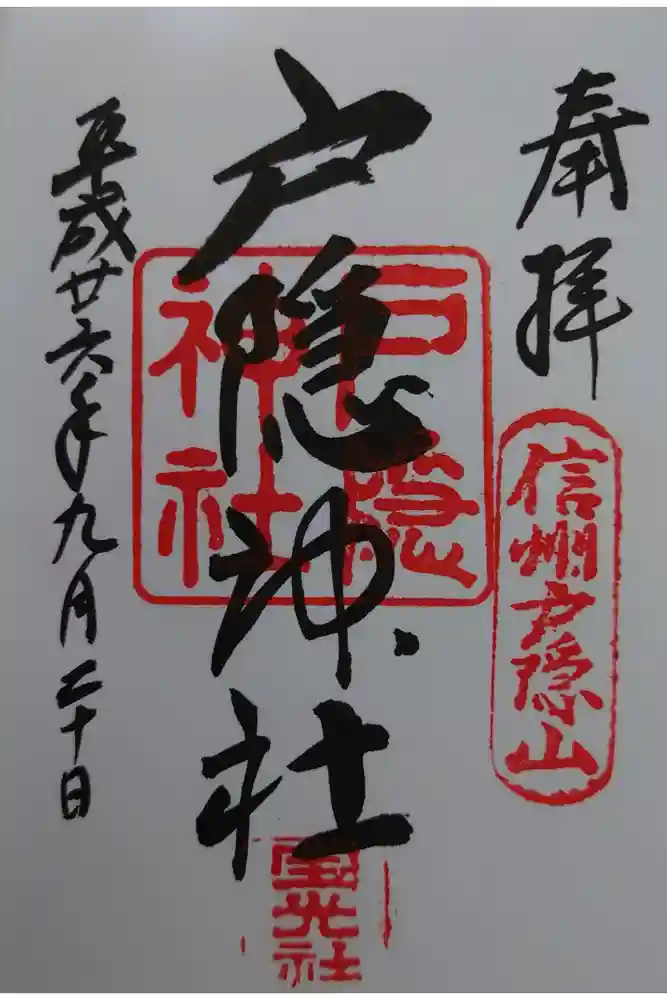 奉拝
信州戸隠山
戸隠神社
戸隠
神社
宝光社
平成廿六年九月二十日